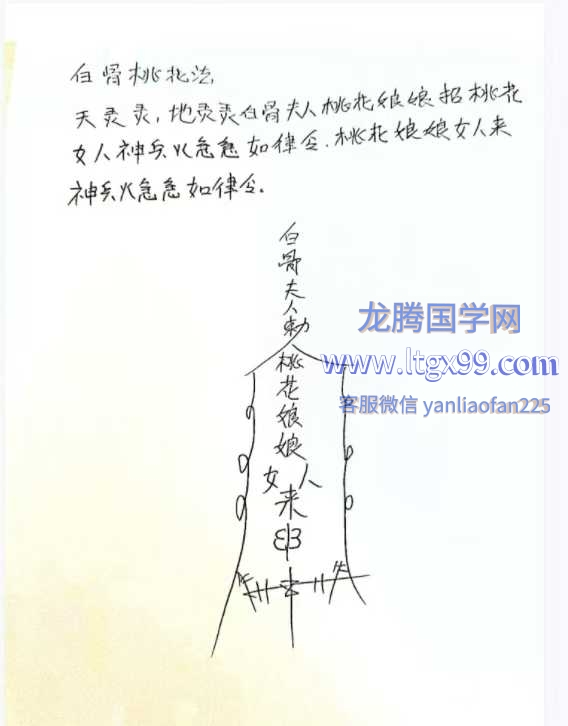 白骨桃花法
天灵灵，地灵灵白骨夫人桃花娘娘招桃花
女人神兵火急急如律令.桃花娘娘女人来
神兵火急急如律令.
白骨夫人勅
桃花娘娘
女人
来
龙腾国学网
www.ltgx99.com
客服微信 yanliaofan225